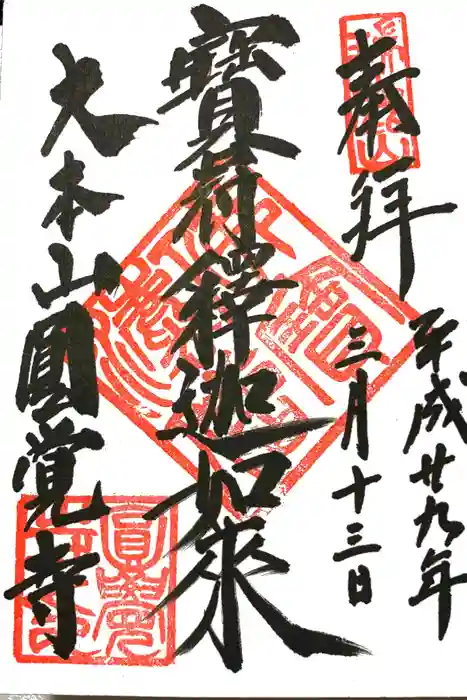 奉拝
平成廿九年
三月十三日
寶冠釋迦如來
大本山圓覚寺